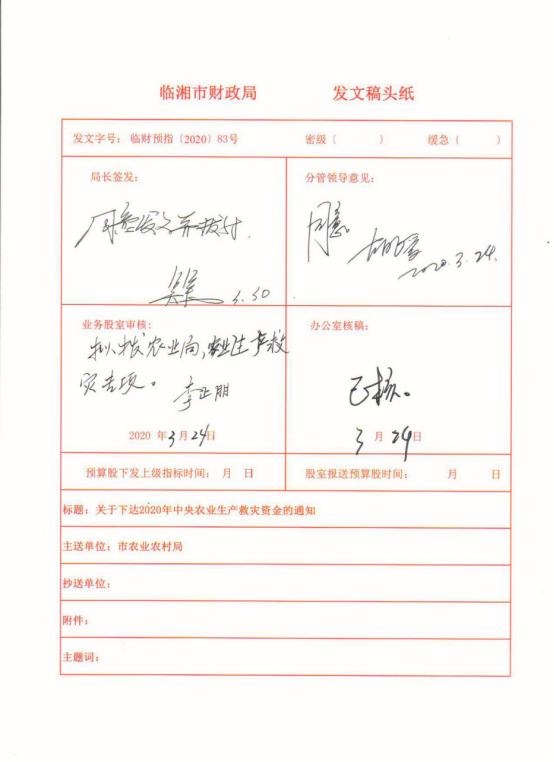 临湘市财政局 发文稿头纸
发文字号：临财预指〔2020〕83号 密级（ ） 缓急（ ）
局长签发：
同意发文并拨付.
3.30
分管领导意见：
同意。
2020.3.24.
业务股室审核：
拟拨农业局，农业生产救
灾专项。
李正朋
2020 年3月24日
办公室核稿：
已核。
3 月 24日
预算股下发上级指标时间： 月 日 股室报送预算股时间： 月 日
标题：关于下达2020年中央农业生产救灾资金的通知
主送单位：市农业农村局
抄送单位：
附件：
主题词：